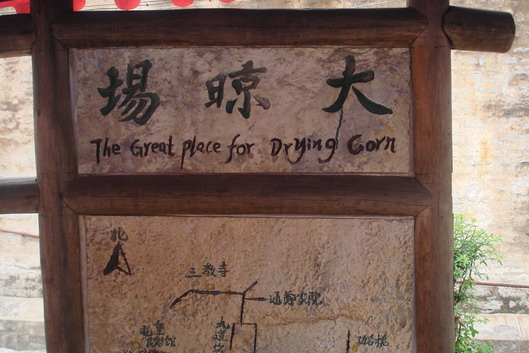 大晾場
The Great place for Drying Corn
北
三教寺
九道
功名桅